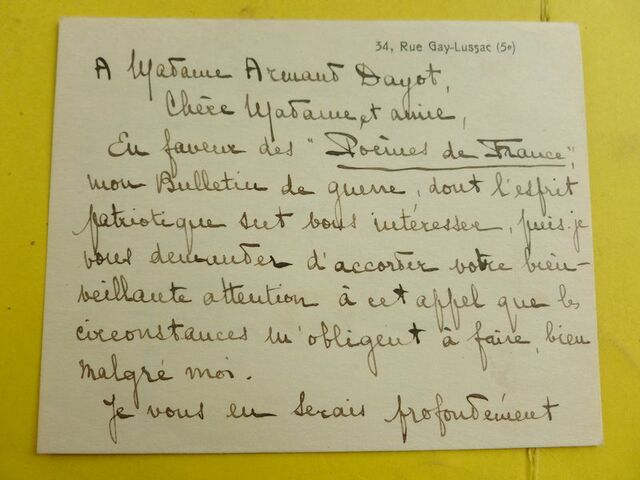 34, Rue Gay-Lussac (5e)
A Madame Armand Dayot,
Chère Madame et amie,
En faveur des "Poèmes de France",
mon Bulletin de guerre, dont l'esprit
patriotique sut vous intéresser, puis-je
vous demander d'accorder votre bien-
veillante attention à cet appel que les
circonstances m'obligent à faire, bien
malgré moi.
Je vous en serais profondément